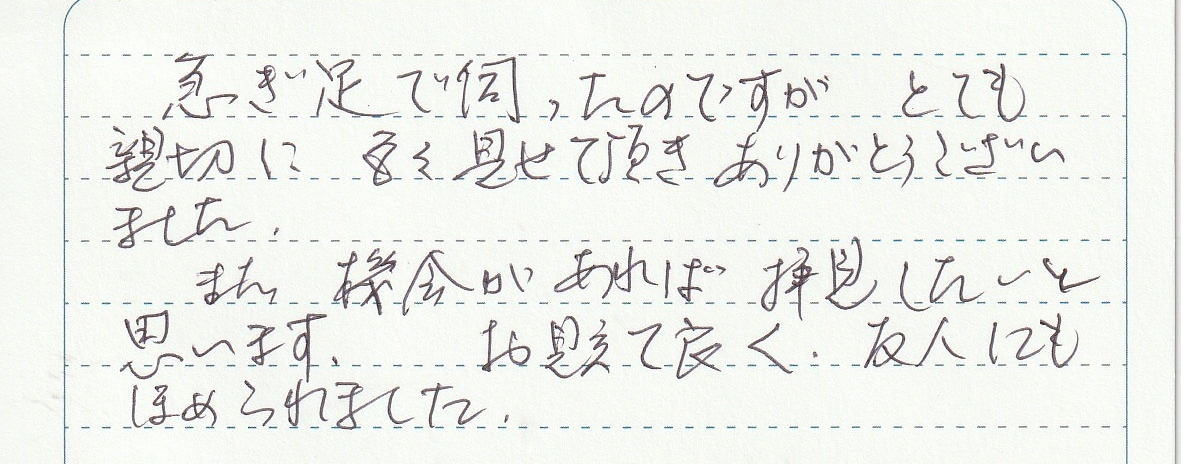 急ぎ足で伺ったのですが とても
親切に 良く見せて頂きありがとうございい
ました。
また 機会があれば 拝見したいと
思います。 て良く、友人にも
ほめられました。